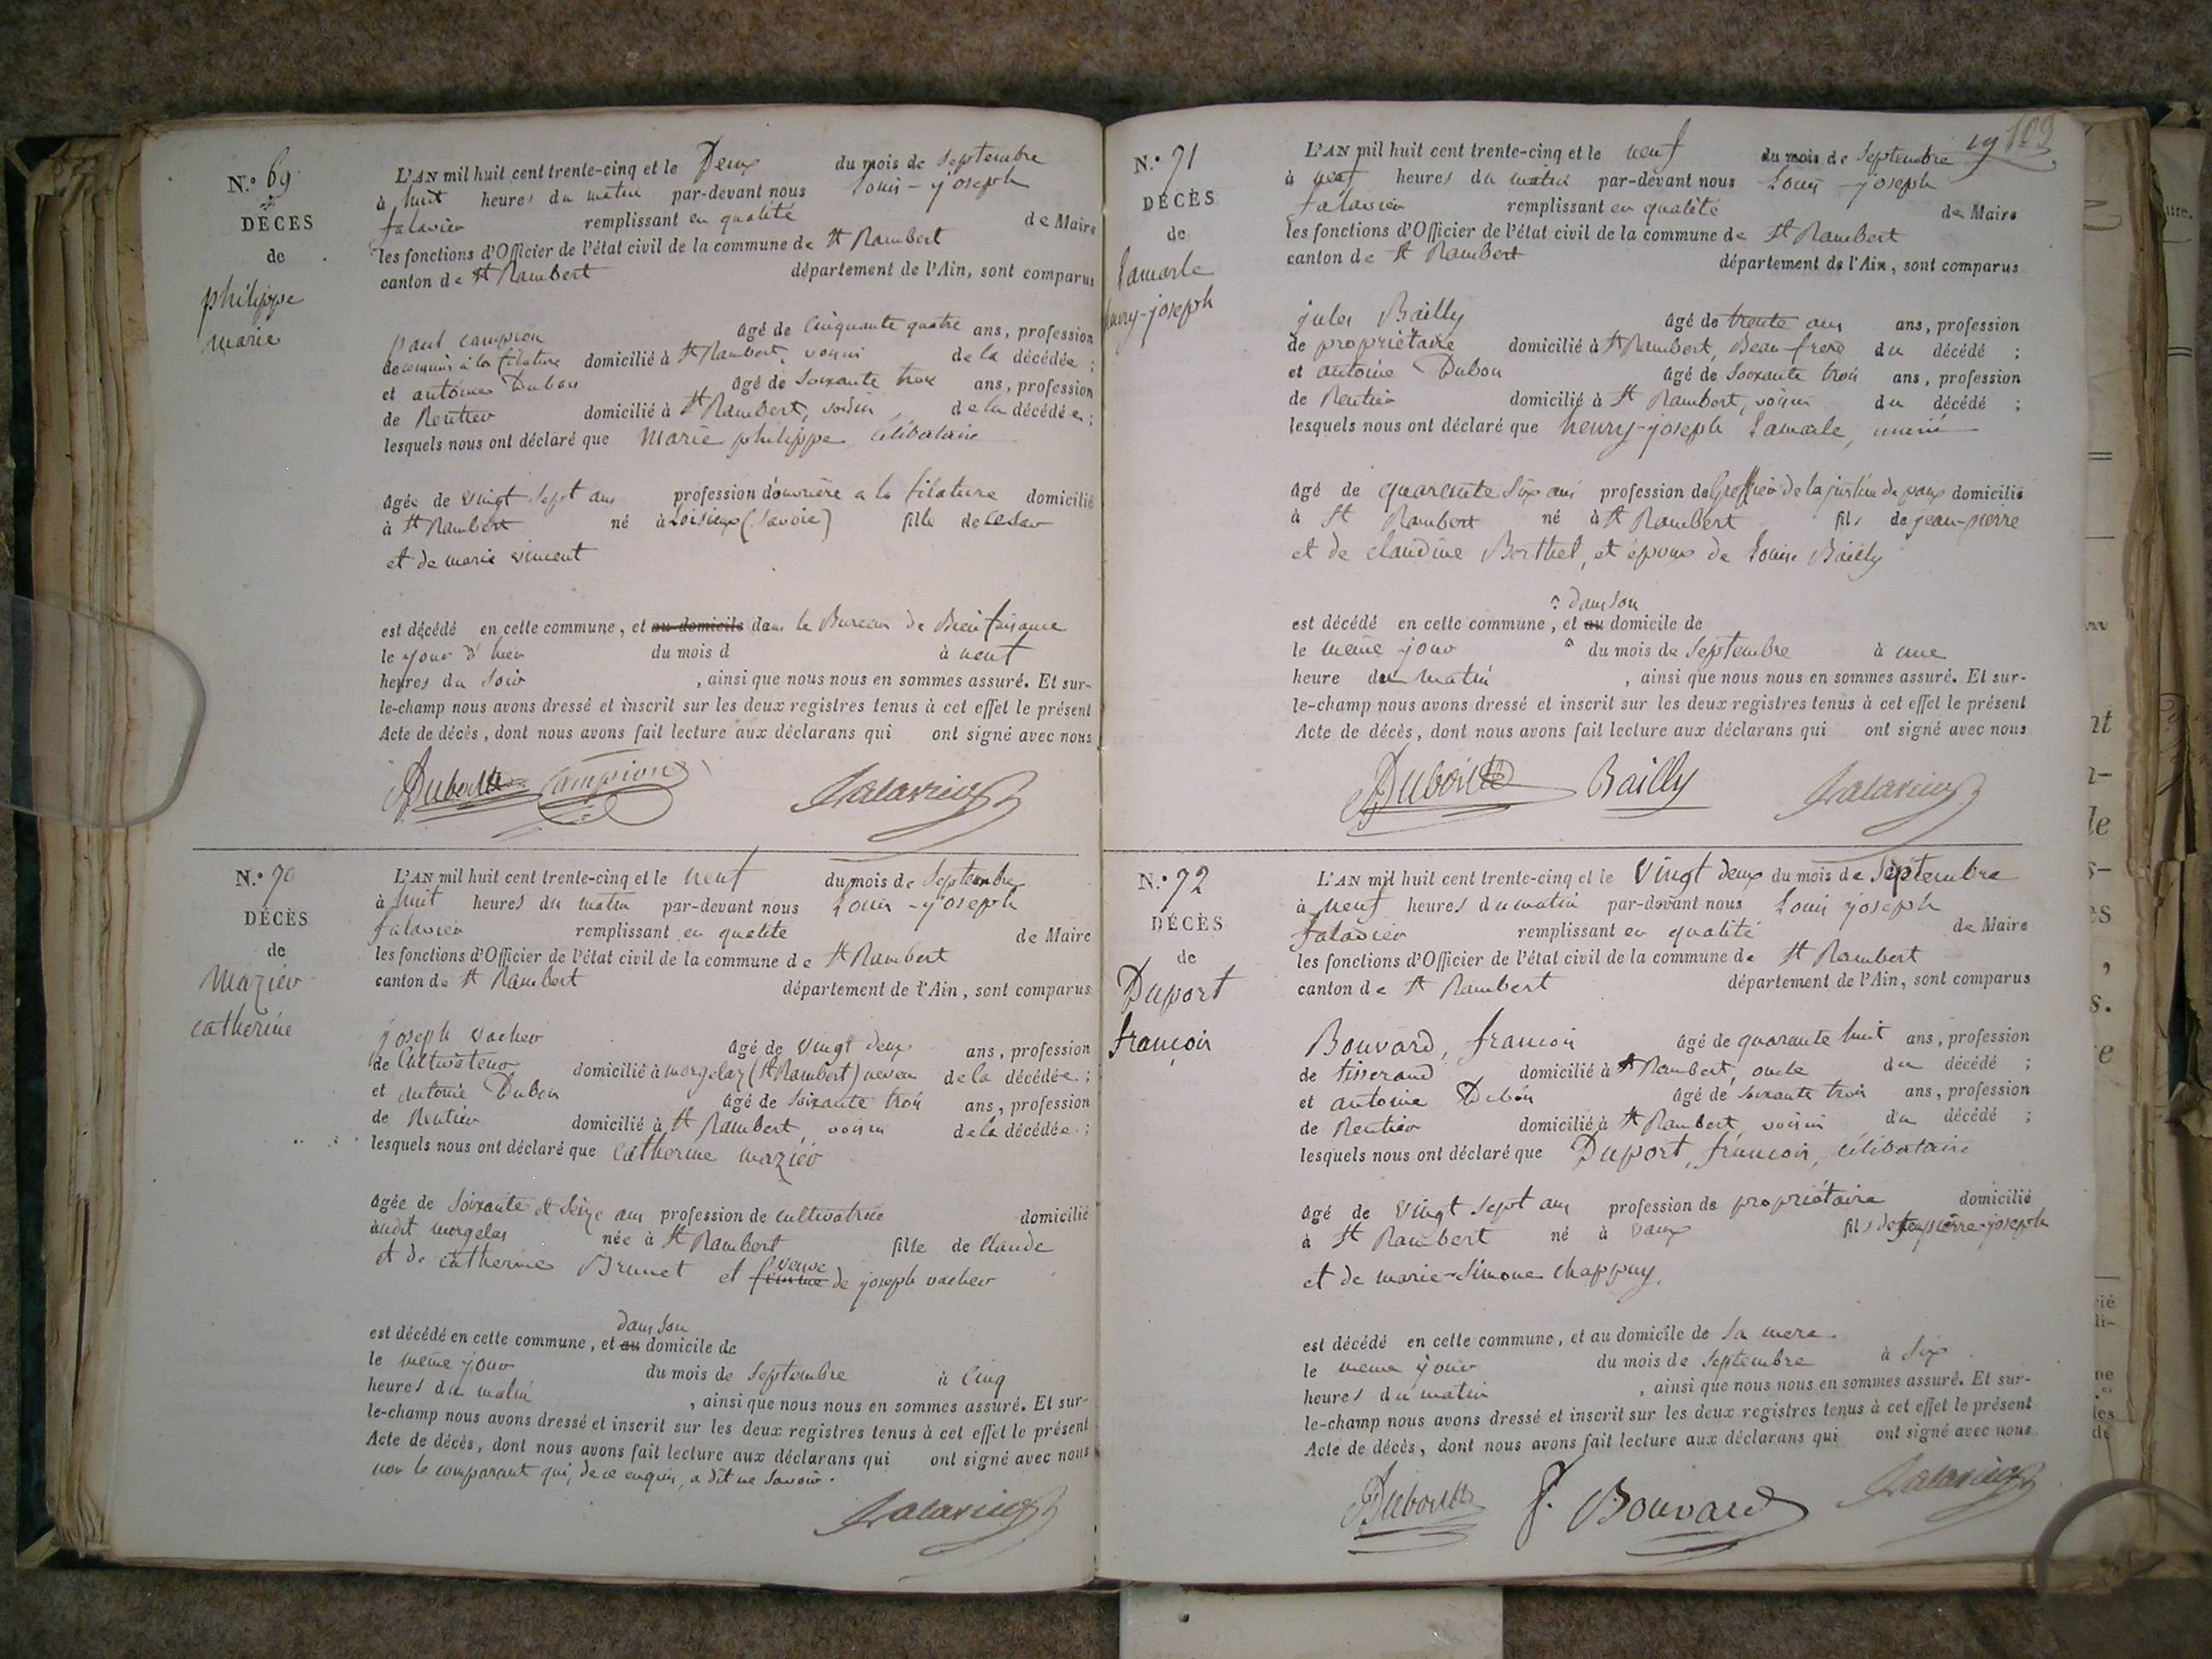 N.° 69
DÉCÈS
de
philippe
marie
L'AN mil huit cent trente-cinq et le Deux du mois de Septembre
à huit heures du matin par-devant nous Louis-joseph
falavier remplissant en qualité de Maire
les fonctions d'Officier de l'état civil de la commune de St Rambert
canton de St Rambert département de l'Ain, sont comparus
paul campion âgé de Cinquante quatre ans, profession
de commis à la filature domicilié à St Rambert, voisin de la décédée ;
et antoine Dubou âgé de Soixante trois ans, profession
de Rentier domicilié à St Rambert, voisin, de la décédée ;
lesquels nous ont déclaré que Marie philippe, célibataire
agée de vingt Sept ans profession d'ouvrière a la filature domicilié
à St Rambert né à Loisieux (Savoie) fille de
et de marie vincent
est décédé en cette commune, et au domicile dans le Bureau de Bienfaisance
le jour d'hier du mois d à neuf
heures du Soir, ainsi que nous nous en sommes assuré. Et sur-
le-champ nous avons dressé et inscrit sur les deux registres tenus à cet effet le présent
Acte de décès, dont nous avons fait lecture aux déclarans qui ont signé avec nous
Campion Falavier
N.° 70
DÉCÈS
de
Mazier
catherine
L'AN mil huit cent trente-cinq et le neuf du mois de Septembre
à huit heures du matin par-devant nous Louis-joseph
falavier remplissant en qualité de Maire
les fonctions d'Officier de l'état civil de la commune de St Rambert
canton de St Rambert département de l'Ain, sont comparus
joseph vacher âgé de vingt deux ans, profession
de Cultivateur domicilié à morgelas (St Rambert) neveu de la décédée ;
et antoine Dubou âgé de Soixante trois ans, profession
de Rentier domicilié à St Rambert, voisin de la décédée ;
lesquels nous ont déclaré que Catherine mazier
agée de Soixante et Seize ans profession de cultivatrice domicilié
audit morgelas née à St Rambert fille de Claude
et de catherine Brunet et femme veuve de joseph vacher
est décédé en cette commune, et au dans son domicile de
le même jour du mois de Septembre à Cinq
heures du matin, ainsi que nous nous en sommes assuré. Et sur-
le-champ nous avons dressé et inscrit sur les deux registres tenus à cet effet le présent
Acte de décès, dont nous avons fait lecture aux déclarans qui ont signé avec nous
non le comparant qui, de ce enquis, a dit ne Savoir.
Falavier
19 109
N.° 71
DÉCÈS
de
Lamarle
henry-joseph
L'AN mil huit cent trente-cinq et le neuf du mois de Septembre
à neuf heures du matin par-devant nous Louis-joseph
falavier remplissant en qualité de Maire
les fonctions d'Officier de l'état civil de la commune de St Rambert
canton de St Rambert département de l'Ain, sont comparus
jules Bailly âgé de trente ans ans, profession
de propriétaire domicilié à St Rambert, Beau-frère du décédé ;
et antoine Dubou âgé de Soixante trois ans, profession
de Rentier domicilié à St Rambert, voisin du décédé ;
lesquels nous ont déclaré que henry-joseph Lamarle, marié
âgé de quarente Six ans profession de Greffier de la justice de paix domicilié
à St Rambert né à St Rambert fils de jean-pierre
et de claudine Berthet, et époux de Louise Bailly
est décédé en cette commune, et au dans son domicile de
le même jour du mois de Septembre à une
heure du matin, ainsi que nous nous en sommes assuré. Et sur-
le-champ nous avons dressé et inscrit sur les deux registres tenus à cet effet le présent
Acte de décès, dont nous avons fait lecture aux déclarans qui ont signé avec nous
Bailly Falavier
N.° 72
DÉCÈS
de
Duport
françois
L'AN mil huit cent trente-cinq et le vingt deux du mois de Septembre
à neuf heures du matin par-devant nous Louis joseph
falavier remplissant en qualité de Maire
les fonctions d'Officier de l'état civil de la commune de St Rambert
canton de St Rambert département de l'Ain, sont comparus
Bouvard, françois âgé de quarante huit ans, profession
de tisserand domicilié à St Rambert, oncle du décédé ;
et antoine Dubou âgé de Soixante trois ans, profession
de Rentier domicilié à St Rambert, voisin du décédé ;
lesquels nous ont déclaré que Duport, françois, célibataire
âgé de vingt Sept ans profession de propriétaire domicilié
à St Rambert né à vaux fils de feu pierre-joseph
et de marie-Simone chappuy,
est décédé en cette commune, et au domicile de Sa mère.
le même jour du mois de Septembre à Six
heures du matin, ainsi que nous nous en sommes assuré. Et sur-
le-champ nous avons dressé et inscrit sur les deux registres tenus à cet effet le présent
Acte de décès, dont nous avons fait lecture aux déclarans qui ont signé avec nous
F. Bouvard Falavier